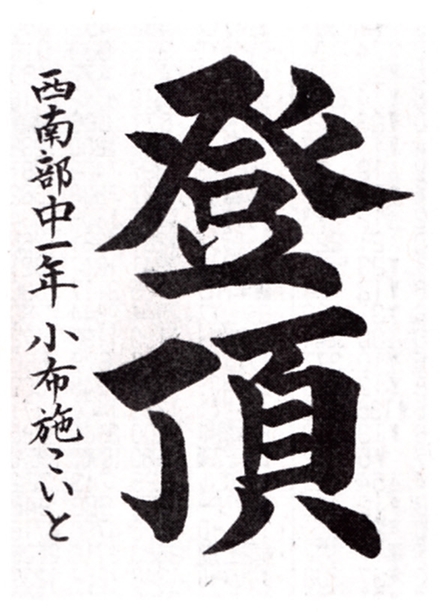 登頂
西南部中一年 小布施こいと